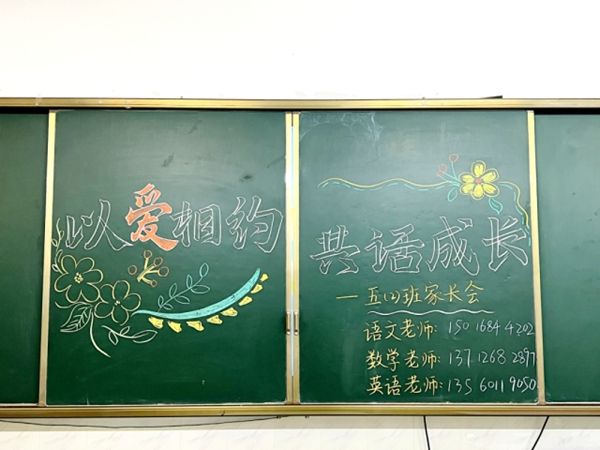 以爱相约
共话成长
—五(2)班家长会
语文老师: 15016844202
数学老师: 13712682897
英语老师: 13560119050